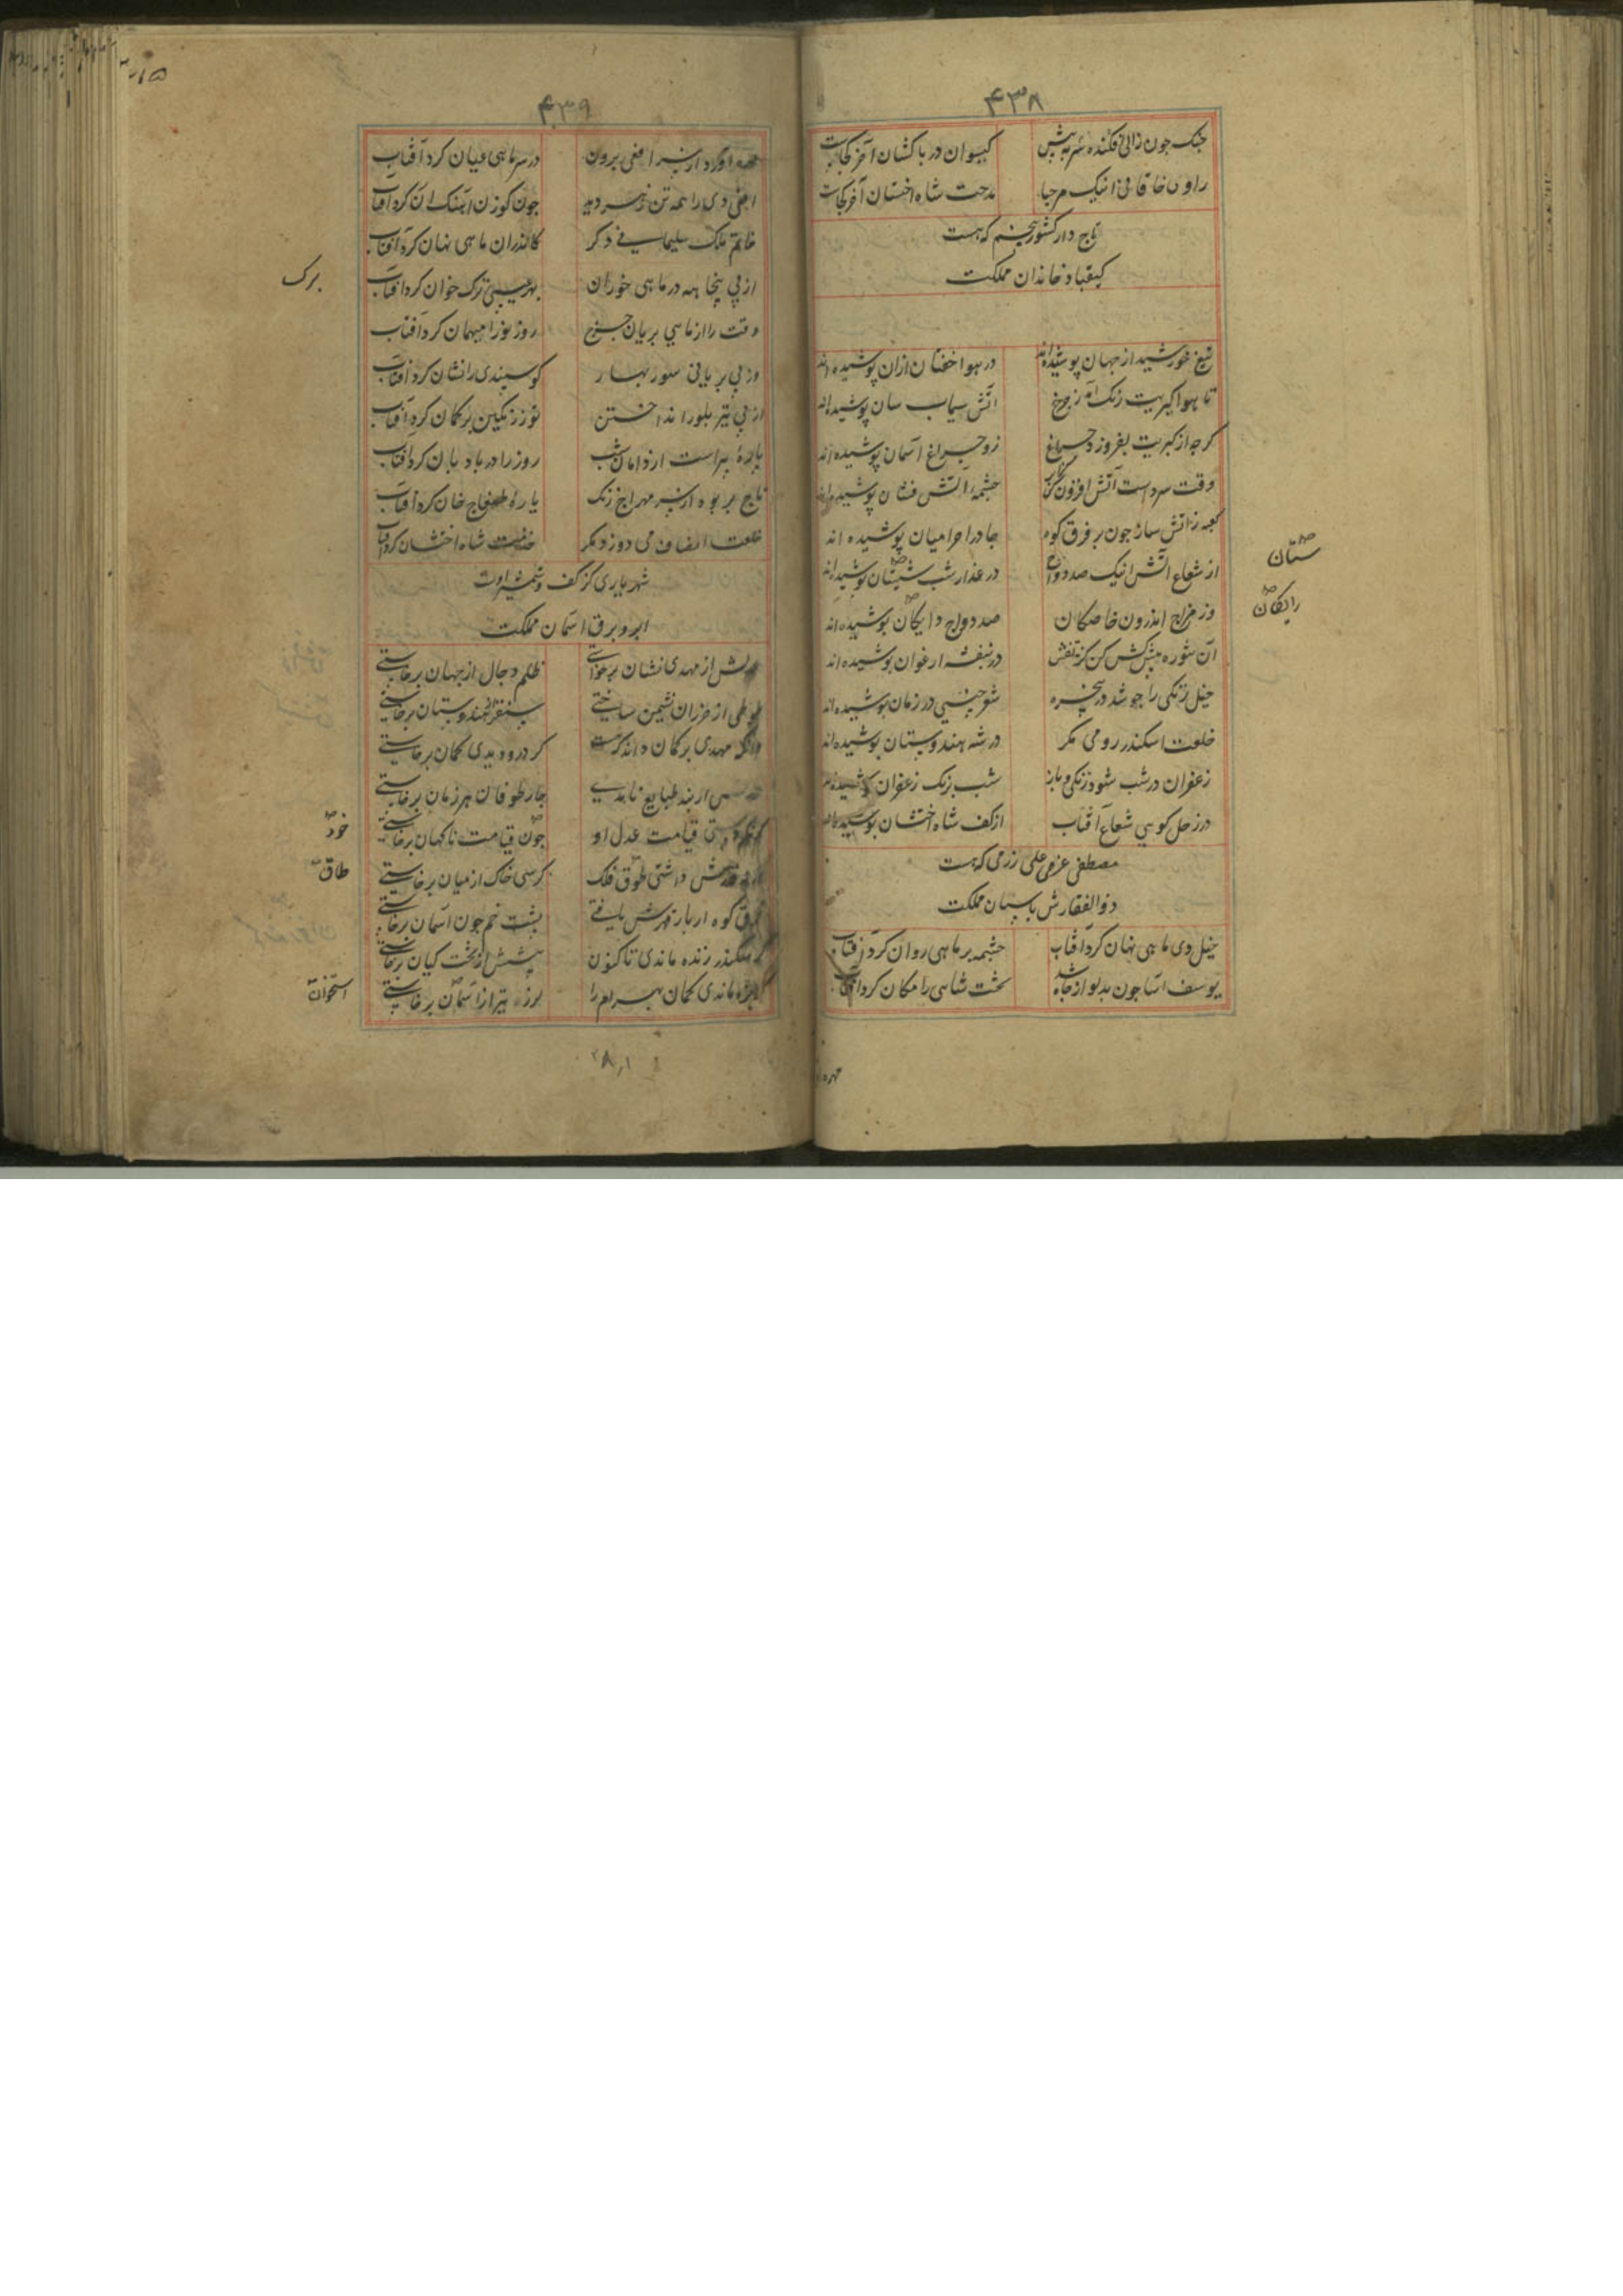 ۴۳۸
جنک جون زالی فکنده سر به پیش کیسوان در پا کشان آخر کجاست
راوی خاقانی انیک مرحبا مدحت شاه اخستان آخر کجاست
تاج دار کشور پنجم که هست
کیقباد خاندان مملکت
تیغ خورشید از جهان پوشیده اند در هوا خفتان ازان پوشیده اند
تا هوا کبریت رنک آمد ز چرخ اتش سیماب سان پوشیده اند
کرچه از کبریت بفروزد چراغ زو چراغ آسمان پوشیده اند
وقت سرد است آتش افزون کن کز چشمه آتش فشان پوشیده اند
کعبه ز آتش ساز جون بر فرق کوه جادر احرامیان پوشیده اند
از شعاع آتش انیک صد دواج در عذار شب شبستان پوشیده اند
ستان
وز مزاج اندرون خاصکان صد دواج دایکان پوشیده اند
رایکان
آن شوره پیش کش کن کز تفش در بنفشه ارغوان پوشیده اند
خیل زنکی را جو شد در پنجره شعر چینی در زمان پوشیده اند
خلعت اسکندر رومی مکر در شه هندوستان پوشیده اند
زعفران در شب شود زنکی و باز شب برنک زعفران پوشیده اند
در زحل کویی شعاع آفتاب از کف شاه اخستان پوشیده اند
مصطفی عزمی علی رزمی که هست
ذوالفقارش پاسبان مملکت
خیل دی ماهی نهان کرد آفتاب چشمه بر ماهی روان کرد آفتاب
یوسف آسا جون بدلو از جاه شد تخت شاهی را مکان کرد آفتاب
۴۳۹
اورد از سر افعی برون در سر ماهی عیان کرد آفتاب
افعی دی را همه تن زهر دید جون کوزن آهنک ان کرد آفتاب
خاتم ملک سلیمانی دکر کاندران ماهی نهان کرد آفتاب
از پی پنجاهه در ماهی خوران بهر عیسی ترک خوان کرد آفتاب
برک
وقت را از ماهی بریان چرخ روز نو را میهمان کرد آفتاب
وز پی بریانی سور بهار کوسپندی را نشان کرد آفتاب
از پی تیر بلور انداختن توز زنکین بر کمان کرد آفتاب
پاره پیراست از دامان شب روز را در بادبان کرد آفتاب
تاج بربود از سر مهراج زنک یاره طمغاج خان کرد آفتاب
خلعت انصاف می دوزد مکر خدمت شاه اخستان کرد آفتاب
شهریاری کز کف و شمشیر اوست
ابر و برق آسمان مملکت
از مهدی نشان برخاستی ظلم دجال از جهان برخاستی
طوطی از خزران نشیمن ساختی سنقر از هندوستان برخاستی
مهدی بر کمان کر درو دیدی کمان برخاستی
از بند طبایع نامدی چار طوفان هر زمان برخاستی
قیامت عدل او جون قیامت ناکهان برخاستی
خود
داشتی طوق فلک کرسی خاک از میان برخاستی
طاق
فرق کوه ار بار قهرش یافتی پشت خم جون آسمان برخاستی
کر سکندر زنده ماندی تاکنون پیشش از تخت کیان برخاستی
ماندی کمان بهرام را لرزه تیر از آسمان برخاستی
استخوان